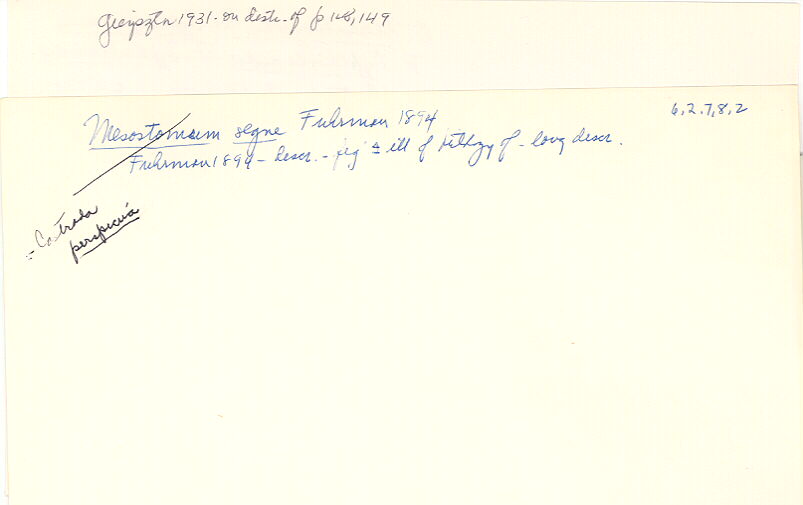 1931 - on distr. of p 148, 149
6, 2, 7, 8, 2
Mesostomum segne Fuhrman 1894
Fuhrman 1894 - Descr. - fig & ill of of - long descr.
= Catrada
perspicua